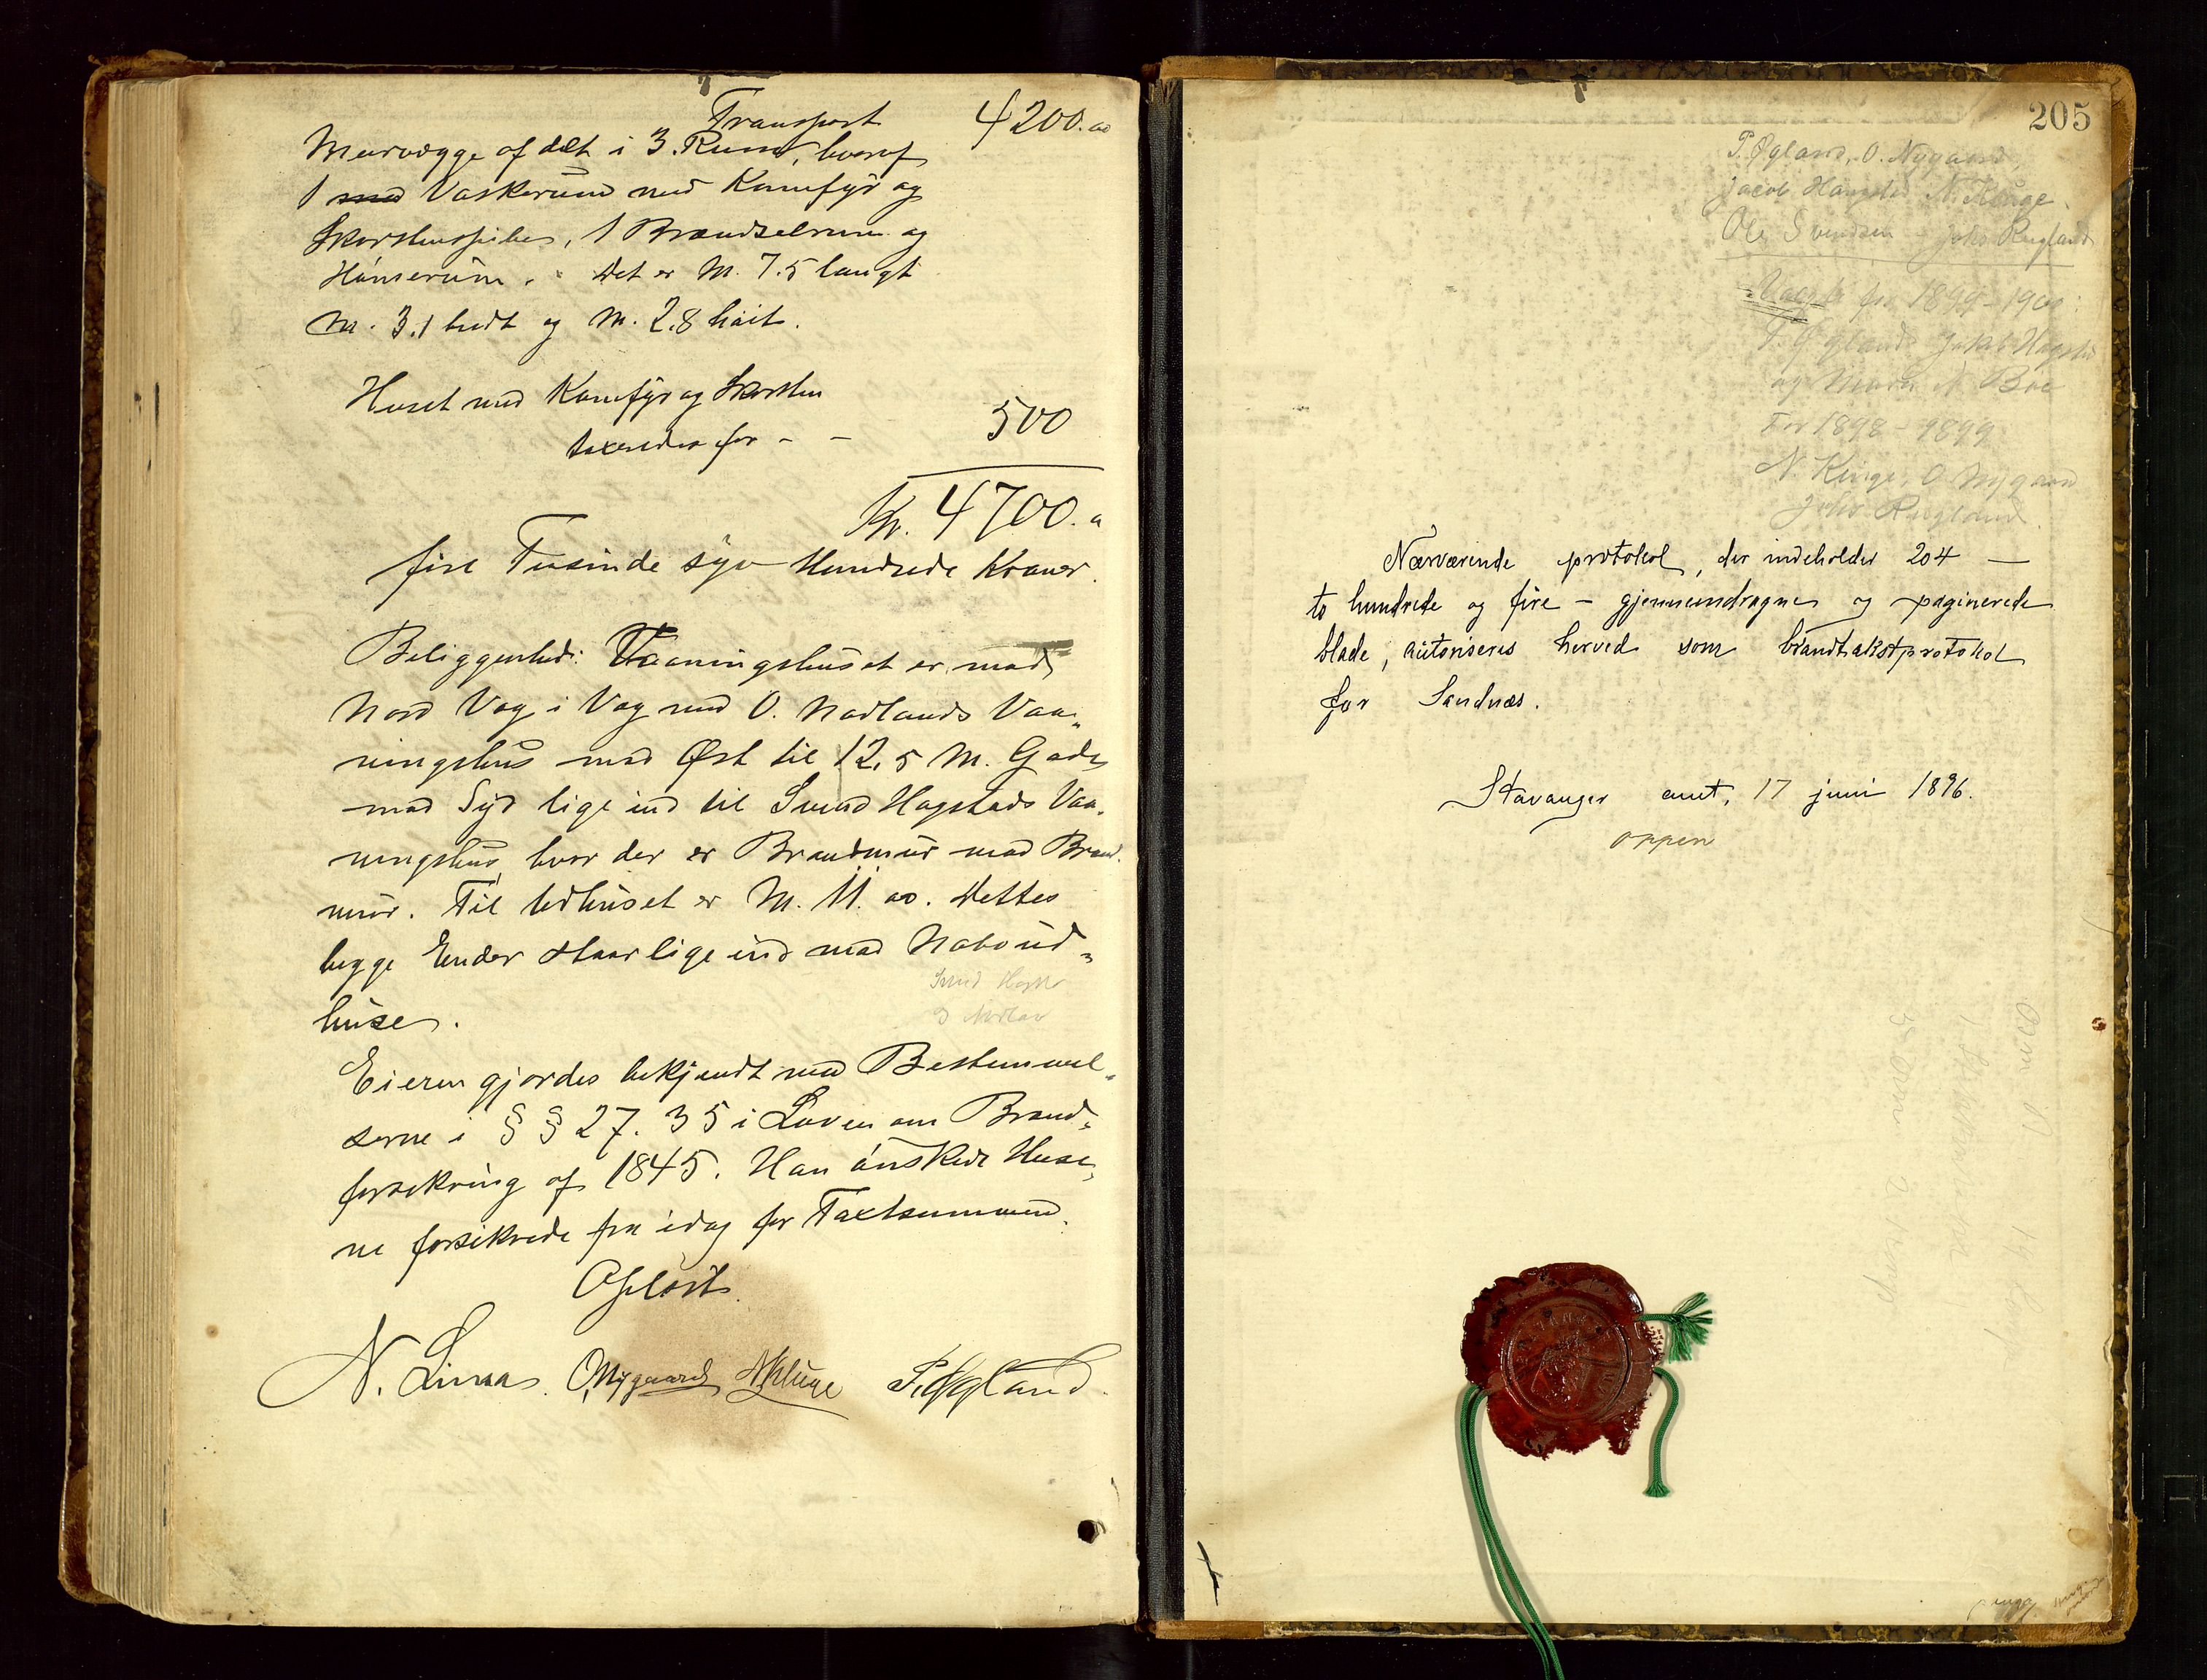 Transport 4200.00
Murvægge afdelt i 3. Rum, hvoraf
1 med Vaskerum med Komfyr og
Skorstenspibe, 1 Brændselrum og
Hønserum. Det er M. 7.5 langt
M. 3.1 bredt og M. 2.8 høit.
Huset med Komfyr og Skorsten
taxeredes for - - 500
Kr. 4700.
fire Tusinde syv Hundrede Kroner.
Beliggenhed: Vaaningshuset er mod
Nord Væg i Væg med O. Nødlands Vaa-
ningshus mod Øst til 12,5 M. Gade
mod Syd lige ind til Svend Hagstads Vaa-
ningshus, hvor der er Brandmur mod Brand-
mur. Til Udhuset er M. 11.00. Dettes
begge Ender staar lige ind mod Naboud-
huse.
Eieren gjordes bekjendt med Bestemmel-
serne i § § 27. 35 i Loven om Brand-
forsikring af 1845. Han ønskede Huse-
ne forsikrede fra idag for Taxtsummen.
Afsluttet
N. Limaas. O. Nygaard N Kluge P. Øgland.
205
P. Øgland, O. Nygaard,
Jacob Hagstad N. Kluge.
Ole Svendsen Johs Rugland
Valgte for 1899-1900:
P. Øgland Jakob Hagstad
og N. Boe
For 1898-1899
N. Kluge, O Nygaard
Johs Rugland.
Nærværende protokol, der indeholder 204 —
to hundrede og fire — gjennemdragne og paginerede
blade, autoriseres herved som brandtakstprotokol
for Sandnæs.
Stavanger amt, 17 juni 1896.
Oppen